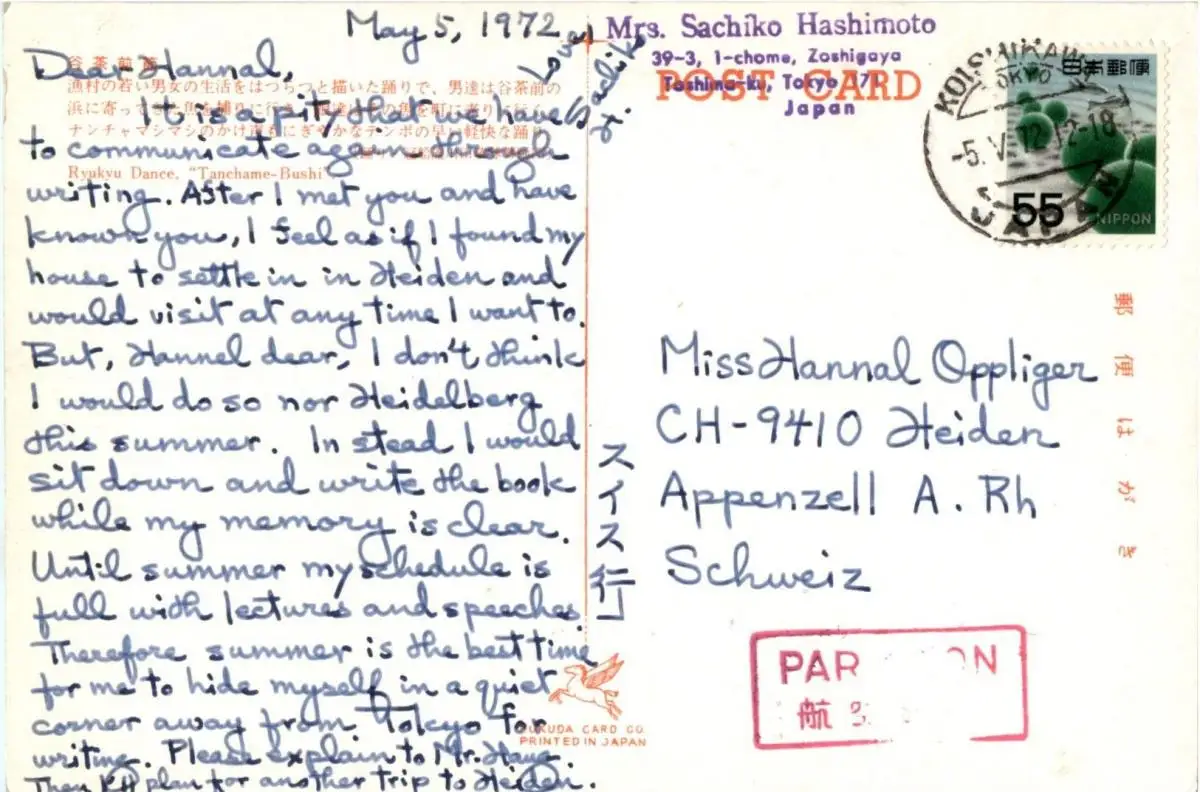 May 5, 1972
Dear Hannal,
It is a pity that we have
to communicate again through
writing. After I met you and have
known you, I feel as if I found my
house to settle in in Heiden and
would visit at any time I want to.
But, Hannel dear, I don't think
I would do so nor Heidelberg
this summer. In stead I would
sit down and write the book
while my memory is clear.
Until summer my schedule is
full with lectures and speeches.
Therefore summer is the best time
for me to hide myself in a quiet
corner away from Tokyo for
writing. Please explain to Mr.
Then plan for another trip to Heiden.
Love,
Sachiko
H.
谷茶前
漁村の若い男女の生活をはつらつと描いた踊りで、男達は谷茶前の
浜に寄って
ナンチャマシマシのかけ声もにぎやかなテンポの早い軽快な踊り
Ryukyu Dance, "Tanchame-Bushi"
Mrs. Sachiko Hashimoto
39-3, 1-chome, Zoshigaya
Toshima-ku, Tokyo, 171
Japan
POST CARD
KOISHIKAWA
TOKYO
-5. V. 72 12-18
JAPAN
日本郵便
55
NIPPON
郵便はがき
スイス行
Miss Hannal Oppliger
CH-9410 Heiden
Appenzell A. Rh
Schweiz
PAR ON
航
FUKUDA CARD CO.
PRINTED IN JAPAN